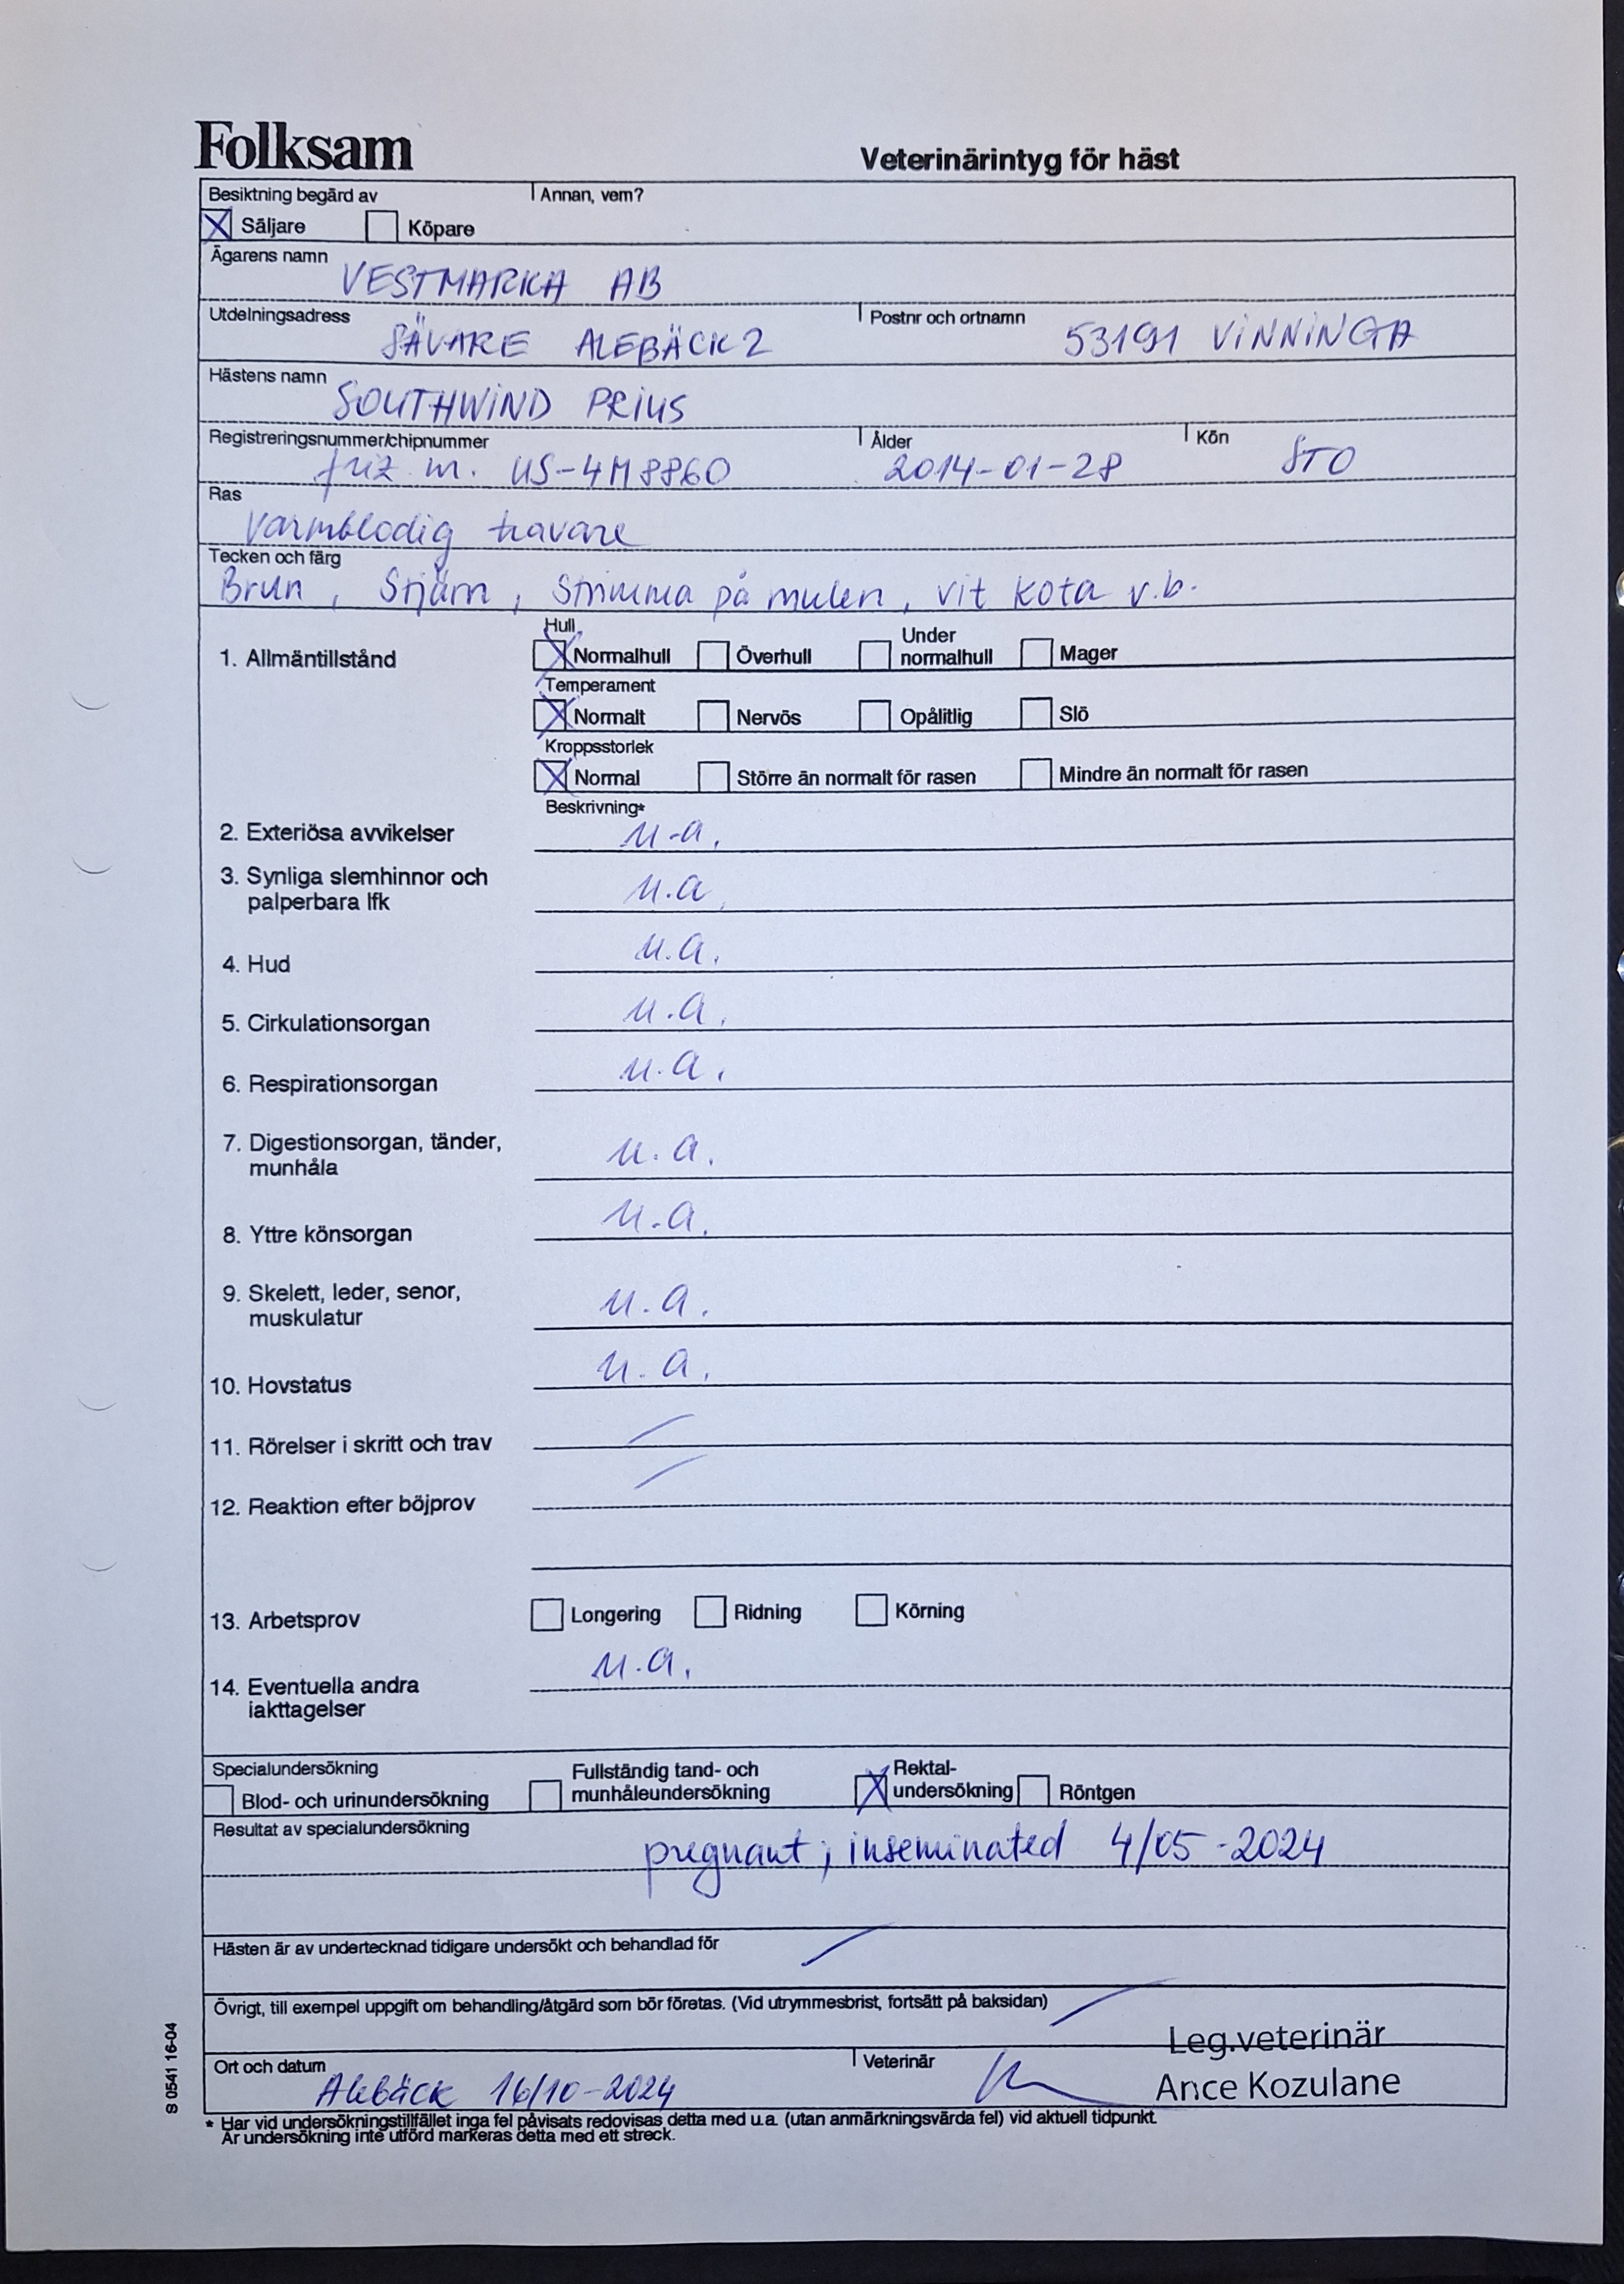 Folksam
Veterinärintyg för häst
Besiktning begärd av
Annan, vem?
Säljare
Köpare
Ägarens namn
VESTMARKA AB
Utdelningsadress
SÄVARE ALEBÄCK 2
Postnr och ortnamn
53191 VINNINGA
Hästens namn
SOUTHWIND PRIUS
Registreringsnummer/chipnummer
friz m. US-4M8860
Ålder
2014-01-28
Kön
STO
Ras
Varmblodig travare
Tecken och färg
Brun, Stjärn, Strimma på mulen, vit kota v.b.
1. Allmäntillstånd
Hull
Normalhull
Överhull
Under
normalhull
Mager
Temperament
Normalt
Nervös
Opålitlig
Slö
Kroppsstorlek
Normal
Större än normalt för rasen
Mindre än normalt för rasen
Beskrivning*
2. Exteriösa avvikelser
u.a.
3. Synliga slemhinnor och
palperbara lfk
u.a.
4. Hud
u.a.
5. Cirkulationsorgan
u.a.
6. Respirationsorgan
u.a.
7. Digestionsorgan, tänder,
munhåla
u.a.
8. Yttre könsorgan
u.a.
9. Skelett, leder, senor,
muskulatur
u.a.
10. Hovstatus
u.a.
11. Rörelser i skritt och trav
12. Reaktion efter böjprov
13. Arbetsprov
Longering
Ridning
Körning
14. Eventuella andra
iakttagelser
u.a.
Specialundersökning
Blod- och urinundersökning
Fullständig tand- och
munhåleundersökning
Rektal-
undersökning
Röntgen
Resultat av specialundersökning
pregnant; inseminated 4/05-2024
Hästen är av undertecknad tidigare undersökt och behandlad för
Övrigt, till exempel uppgift om behandling/åtgärd som bör företas. (Vid utrymmesbrist, fortsätt på baksidan)
Ort och datum
Alebäck 16/10-2024
Veterinär
Leg.veterinär
Ance Kozulane
* Har vid undersökningstillfället inga fel påvisats redovisas detta med u.a. (utan anmärkningsvärda fel) vid aktuell tidpunkt.
Är undersökning inte utförd markeras detta med ett streck.
S 0541 16-04